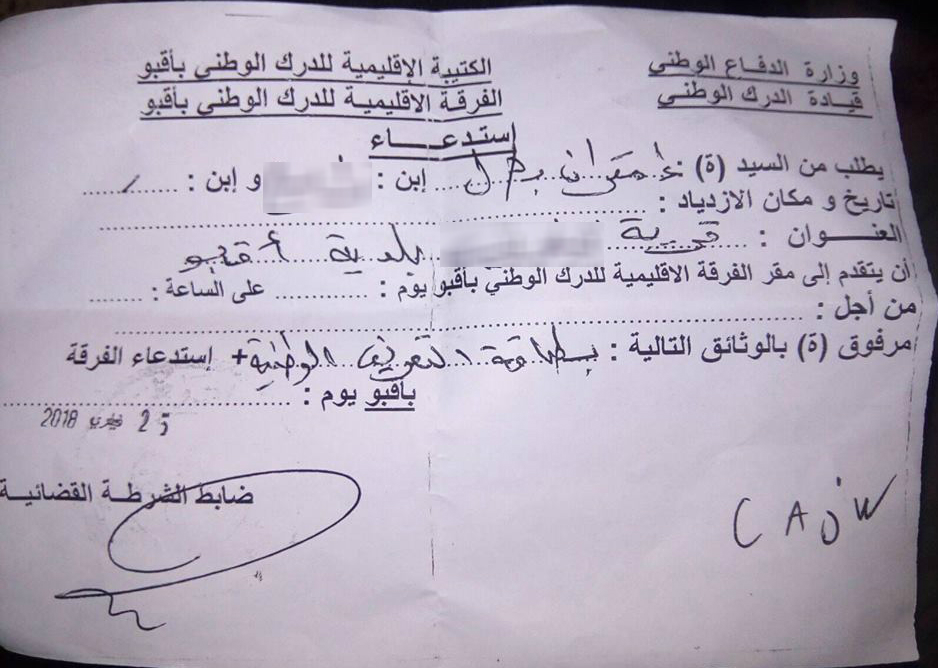 وزارة الدفاع الوطني
قيادة الدرك الوطني
الكتيبة الإقليمية للدرك الوطني بأقبو
الفرقة الإقليمية للدرك الوطني بأقبو
إستدعــــاء
يطلب من السيد (ة) إبن : و إبن : /
تاريخ و مكان الازدياد :
العنـــوان : قرية بلدية أقبو
أن يتقدم إلى مقر الفرقة الاقليمية للدرك الوطني بأقبو يوم : على الساعة :
من أجل :
مرفوق (ة) بالوثائق التالية : بطاقة التعريف الوطنية + إستدعاء الفرقة
بأقبو يوم :
25 2018
ضابط الشرطة القضائية